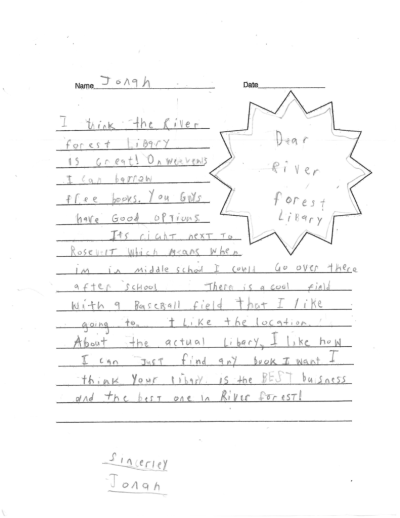 Name Jonah
Date
Dear
River
forest
Library
I think the River
forest Libary
is Great! On weekends
I Can borrow
free books. You Guys
have Good options.
Its right next to
Rosevelt which means when
im in middle school I could Go over there
after school There is a cool field
with a Baseball field that I like
going to. I Like the location.
About the actual Libary, I like how
I can Just find any book I want I
think Your libary is the BEST business
and the best one in River forest!
Sincerley
Jonah